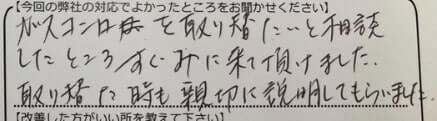 【今回の弊社の対応でよかったところをお聞かせください】
ガスコンロを取り替たいと相談
したところすぐみに来て頂けました.
取り替た時も親切に説明してもらいました.
【改善した方がいい所を教えて下さい】